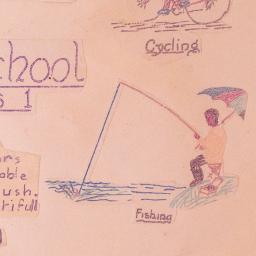 Cycling
chool
s 1
rs
able
ush.
tifull
Fishing